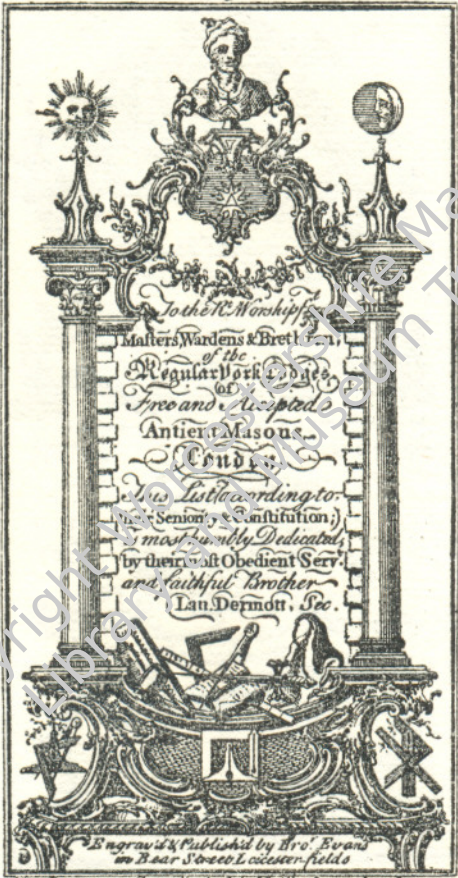 To the Rt. Worshipf.
Masters, Wardens & Brethren,
of the
Regular York Lodges
of
Free and Accepted
Antient Masons
London
This List (according to
their Seniority & Constitution;)
is most humbly Dedicated,
by their Most Obedient Servt.
and Faithful Brother
Lau. Dermott, Sec.
Engrav'd & Publish'd by Bro. Evans
in Bear Street Leicester-fields
Copyright Worcestershire
Library and Museum